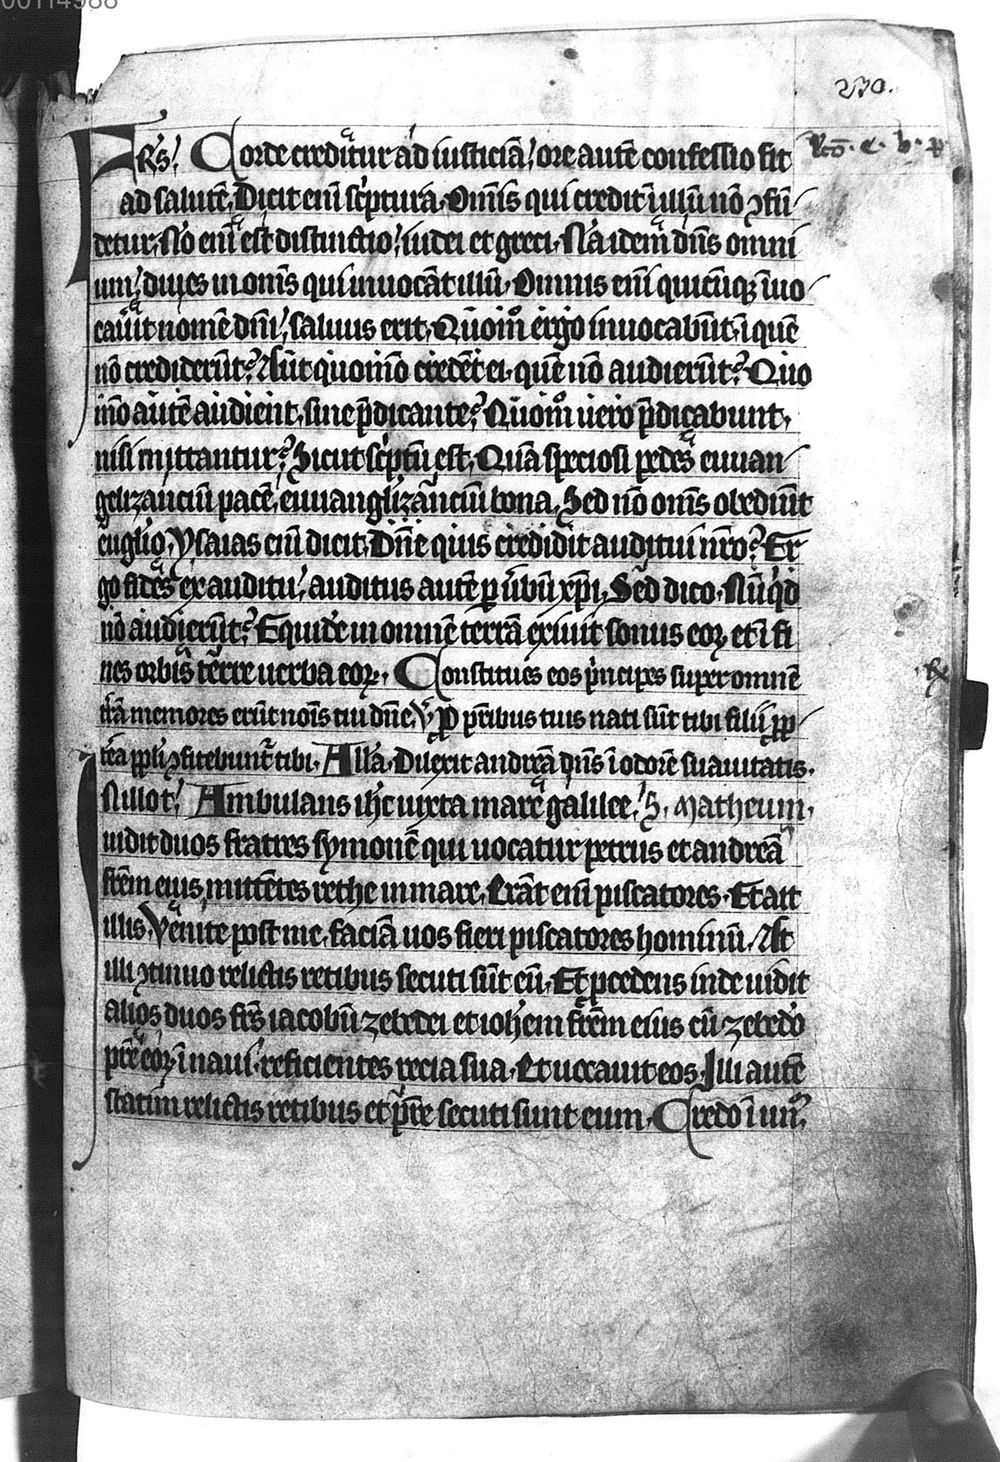 00114988
230.
FRs. Corde creditur ad iusticiā, ore autē confessio fit
Rō. e. b. p
ad salutē. Dicit enī scͥptura. Om̄is qui credit ī illū nō ꝯfū
detur. Nō enī est distinctio, iudei et greci. Nā idem dn̄s omni
um, diues in om̄is qui inuocāt illū. Omnis enī quicūqꝫ īuo
cauit nomē dn̄i, saluus erit. Quōm̊ ergo inuocabūt, ī quē
nō crediderūt? Aut quomō credēt ei, quē nō audierūt? Quo
mō autē audient, sine p̄dicante? Quōm̊ uero p̄dicabunt,
nisi mittantur? Sicut scͥptū est, Quā speciosi pedes euuan
gelizanciū pacē, euuanglizanciū bona. Sed nō om̄s obediūt
euglio. Ysaias enī dicit. Dn̄e quis credidit auditui nr̄o? Er
go fides ex auditu, auditus autē ꝑ ūbū xp̄i. Sed dico. Nūqͥd
nō audierūt? Equidē in omnē terrā exiuit sonus eoꝝ, et ī fi
nes orbis terre uerba eoꝝ. Constitues eos pͥncipes super omnē
tr̄ā memores erūt nōis tui dn̄e. V̊ P pr̄ibus tuis nati sūt tibi filii ꝓp
terea ppl̄i ꝯfitebunt̄ tibi. All̄a. Dilexit andreā dn̄s ī odorē suauitatis.
In illo t̄. Ambulans ih̄c iuxta mare galilee, S. Matheum.
uidit duos fratres symonē qui uocatur petrus et andreā
fr̄em eius, mittētes rethe in mare. Erāt enī piscatores. Et ait
illis. Venite post me, faciā uos fieri piscatores hominū. At
illi ꝯtinuo relictis retibus secuti sūt eū. Et ꝓcedens inde uidit
alios duos fr̄s iacobū zebedei et ioh̄em fr̄em eius cū zebedo
pr̄e eoꝝ ī naui, reficientes recia sua. Et uocauit eos. Illi autē
statim relictis retibus et pr̄e secuti sunt eum. Credo ī un̄.